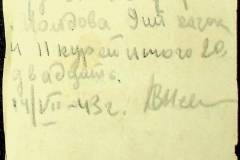 Холдова 9 шт качок
и 11 курей итого 20
двадцать.
14/VII-43 г.